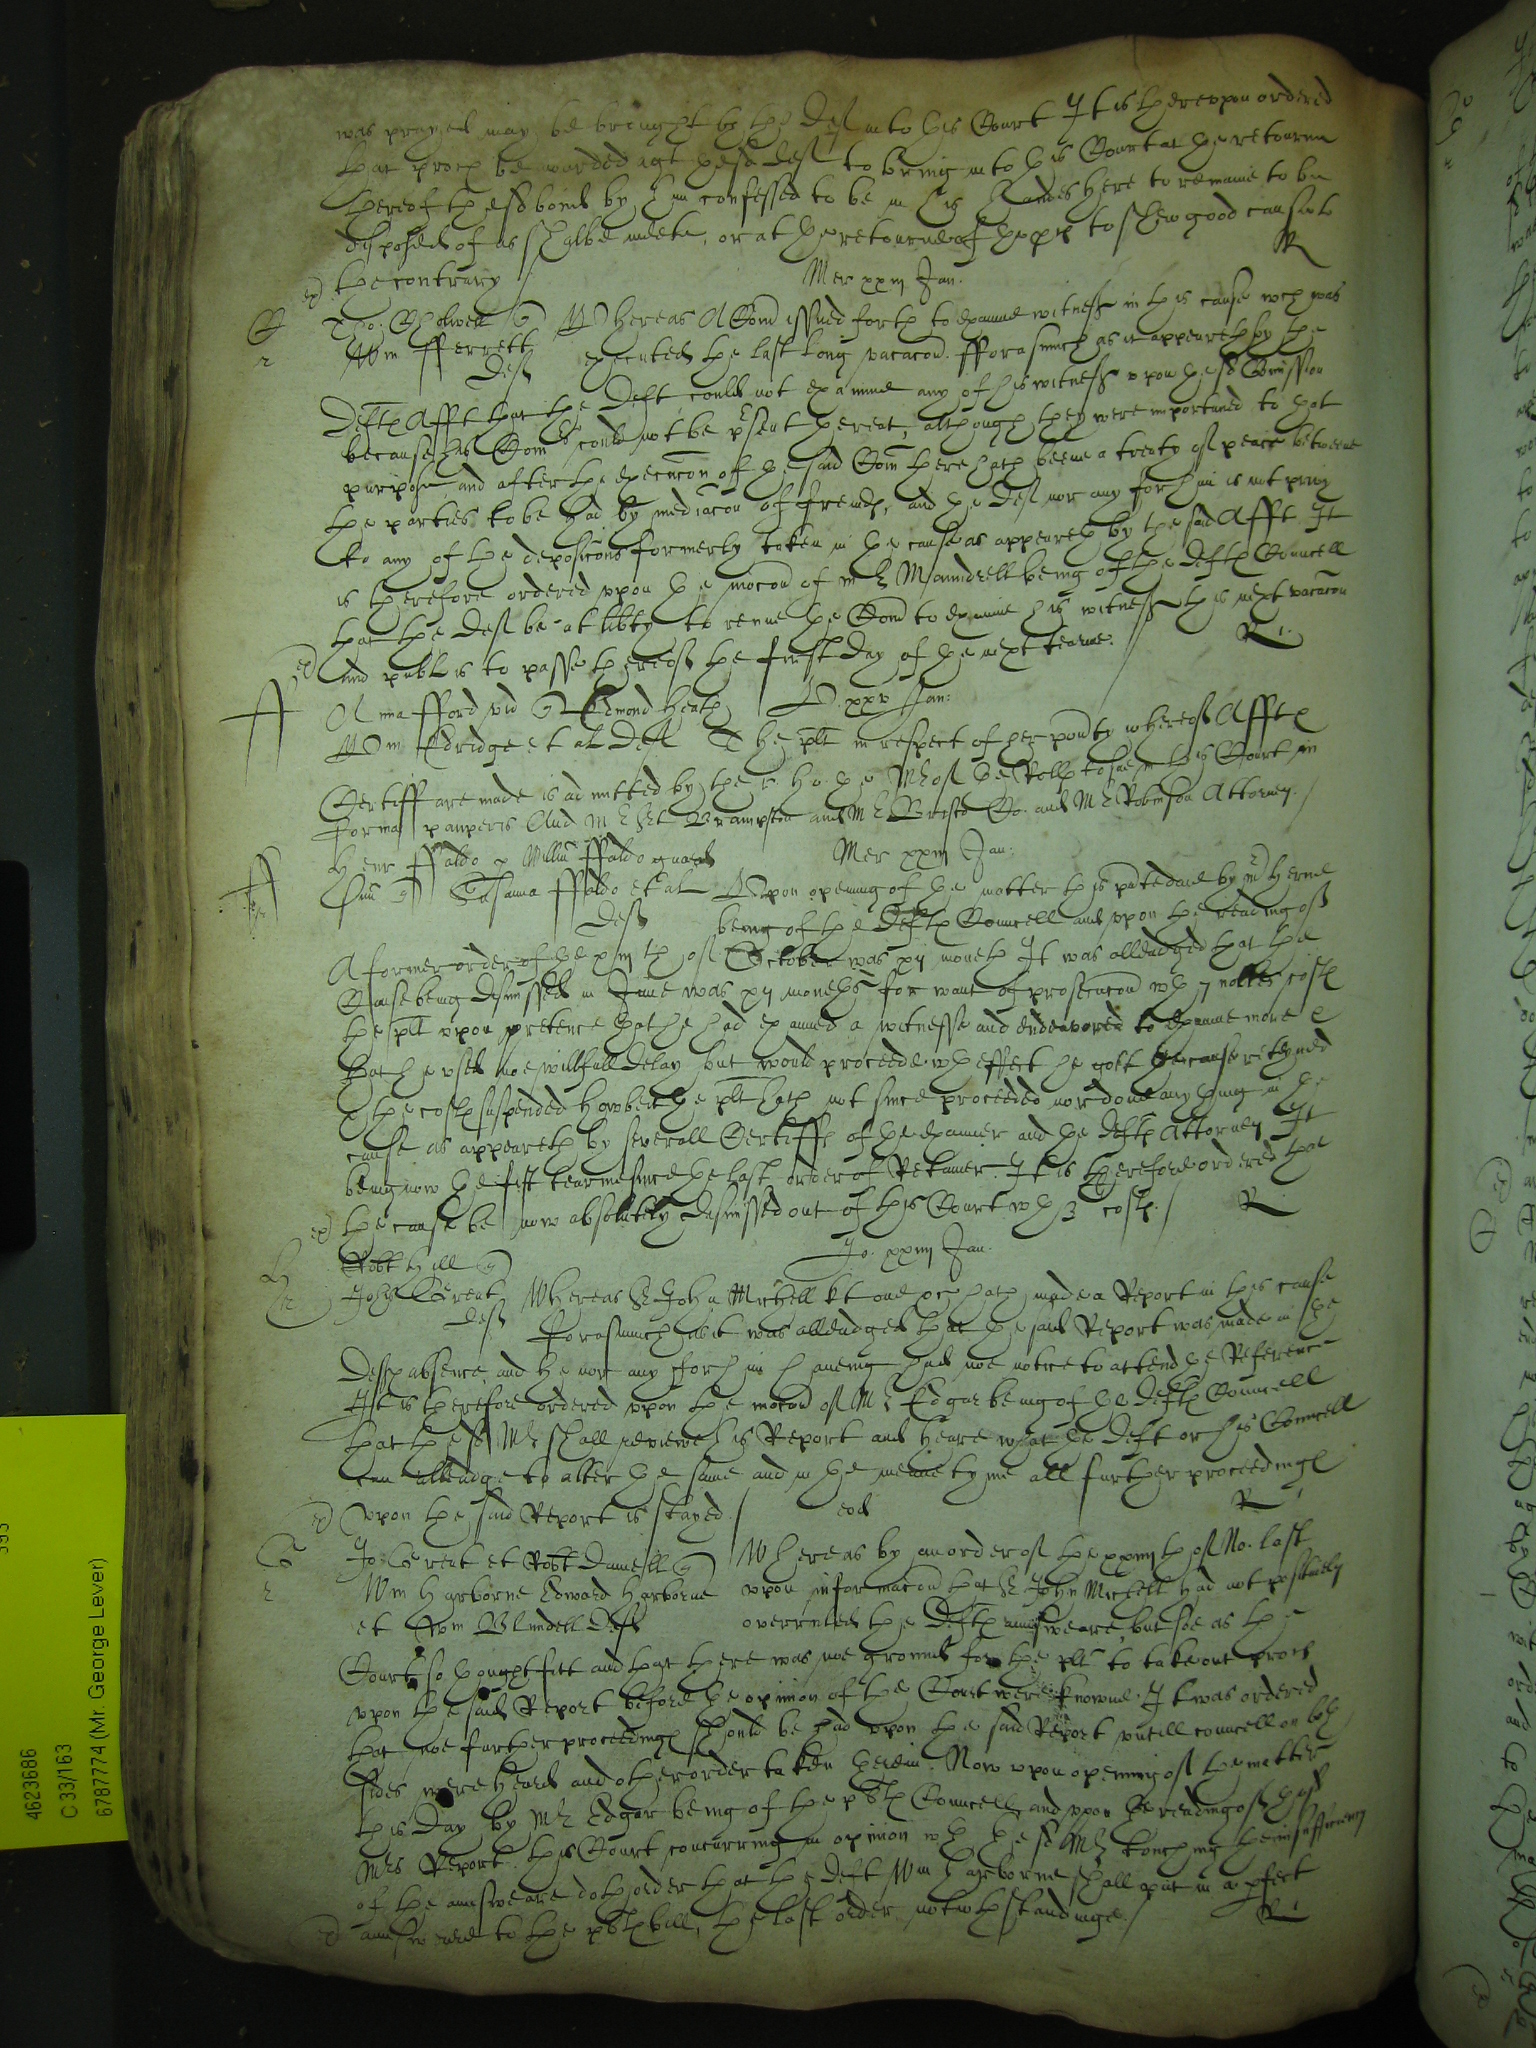 was prayed may be brought by the Deft into this Court It is thereupon ordered
that proces be awarded agt the sd Deft to bring into this Court at the retourne
thereof the sd bond by him confessed to be in his handes here to remaine to be
disposed of as shalbe meete, or at the retourne of the proces to shew good cause to
the contrary / R
Mer xxiij Jan.
Tho: Wm fferrett Deft Whereas A Com issued forth to examine witnesses in this cause wch was
executed the last long vacacon. fforasmuch as it appeareth by the
Defts Afft that the Deft could not examine any of his witness upon the sd Comission
because his Comrs could not be psent thereat, although they were importuned to that
purpose, and after the execucon of the said Com there hath beene a treaty of peace betweene
the parties to be had by mediacon of freinds, and the Deft nor any for him is not privy
to any of the deposicons formerly taken in the cause as appeareth by the said Afft It
is therefore ordered upon the mocon of Mr Maundrell being of the Defts Councell
that the Deft be at libty to renue the Com to examine his witness this next vacacon
and publ is to passe thereof the first day of the next tearme. / R
Anna fford vid Edmond Heath
V. xxv Jan:
Wm Eldridge et al Deft The plt in respect of her povrty whereof Affts
Certiff are made is admitted by the r. ho. the Mr of the Rolls to sue in this Court in
forma pauperis And Mr Brampston and Mr Co. and Mr Robinson Attorney. /
Henr ffaldo p Willm ffaldo guard
Mer xxiij Jan:
Susanna ffaldo et al Deft Upon opening of the matter this pnte daie by Mr Herne
being of the Defts Councell and upon the reading of
A former order of the xiijth of October was xij moneth It was alleadged that the
Cause being dismissed in June was xij moneths for want of prosecucon wth 7 nobles costs
the plt upon pretence that he had examined a witnesse and endeavored to examine more &
that he used noe willfull delay but would proceede wth effect he gott the cause reteyned
& the costs suspended Howbeit the plt hath not since proceeded nor done any thing in the
cause as appeareth by severall Certiffs of the examiner and the Defts Attorney It
being now the first tearme since the last order of Retainer. It is therefore ordered that
the cause be now absolutely dismissed out of this Court wth costs. / R
Jo. xxiiij Jan.
Robt Hill
John Gereat Deft Whereas Sr John Michell kt one &c hath made a Report in this cause
forasmuch as it was alleadged that the said Report was made in the
Defts absence, and he nor any for him haveing had noe notice to attend the Referenc
It is therefore ordered upon the mocon of Mr Edgar being of the Defts Councell
that the sd Mr shall reviewe his Report and heare what the Deft or his Councell
can alleadge to alter the same and in the meane tyme all further proceedings
upon the said Report is stayed. / R
eod
Jo: Gereat et Robt Daniell Whereas by an order of the xxiiijth of No. last
Wm Harborne Edward Harborne upon informacon that Sr John Michell had not positively
et Wm Blundell Defts overruled the Defts aunsweare, but soe as the
Court so thought fitt and that there was noe ground for the plt to take out proces
upon the said Report before the opinion of the Court were knowne. It was ordered
that noe further proceedings should be had upon the said Report untill councell on both
sides were heard and other order taken therein. Now upon opening of the matter
this day by Mr Edgar being of the plts Councell, and upon the reading of the sd
Mrs Report this Court concurring in opinion wth the sd Mr touching the insufficiency
of the aunsweare doth order that the Deft Wm Harborne shall put in a pfect
aunsweare to the plts bill, the last order notwthstandinge. / R
4623686
C 33/163
6787774 (Mr. George Lever)